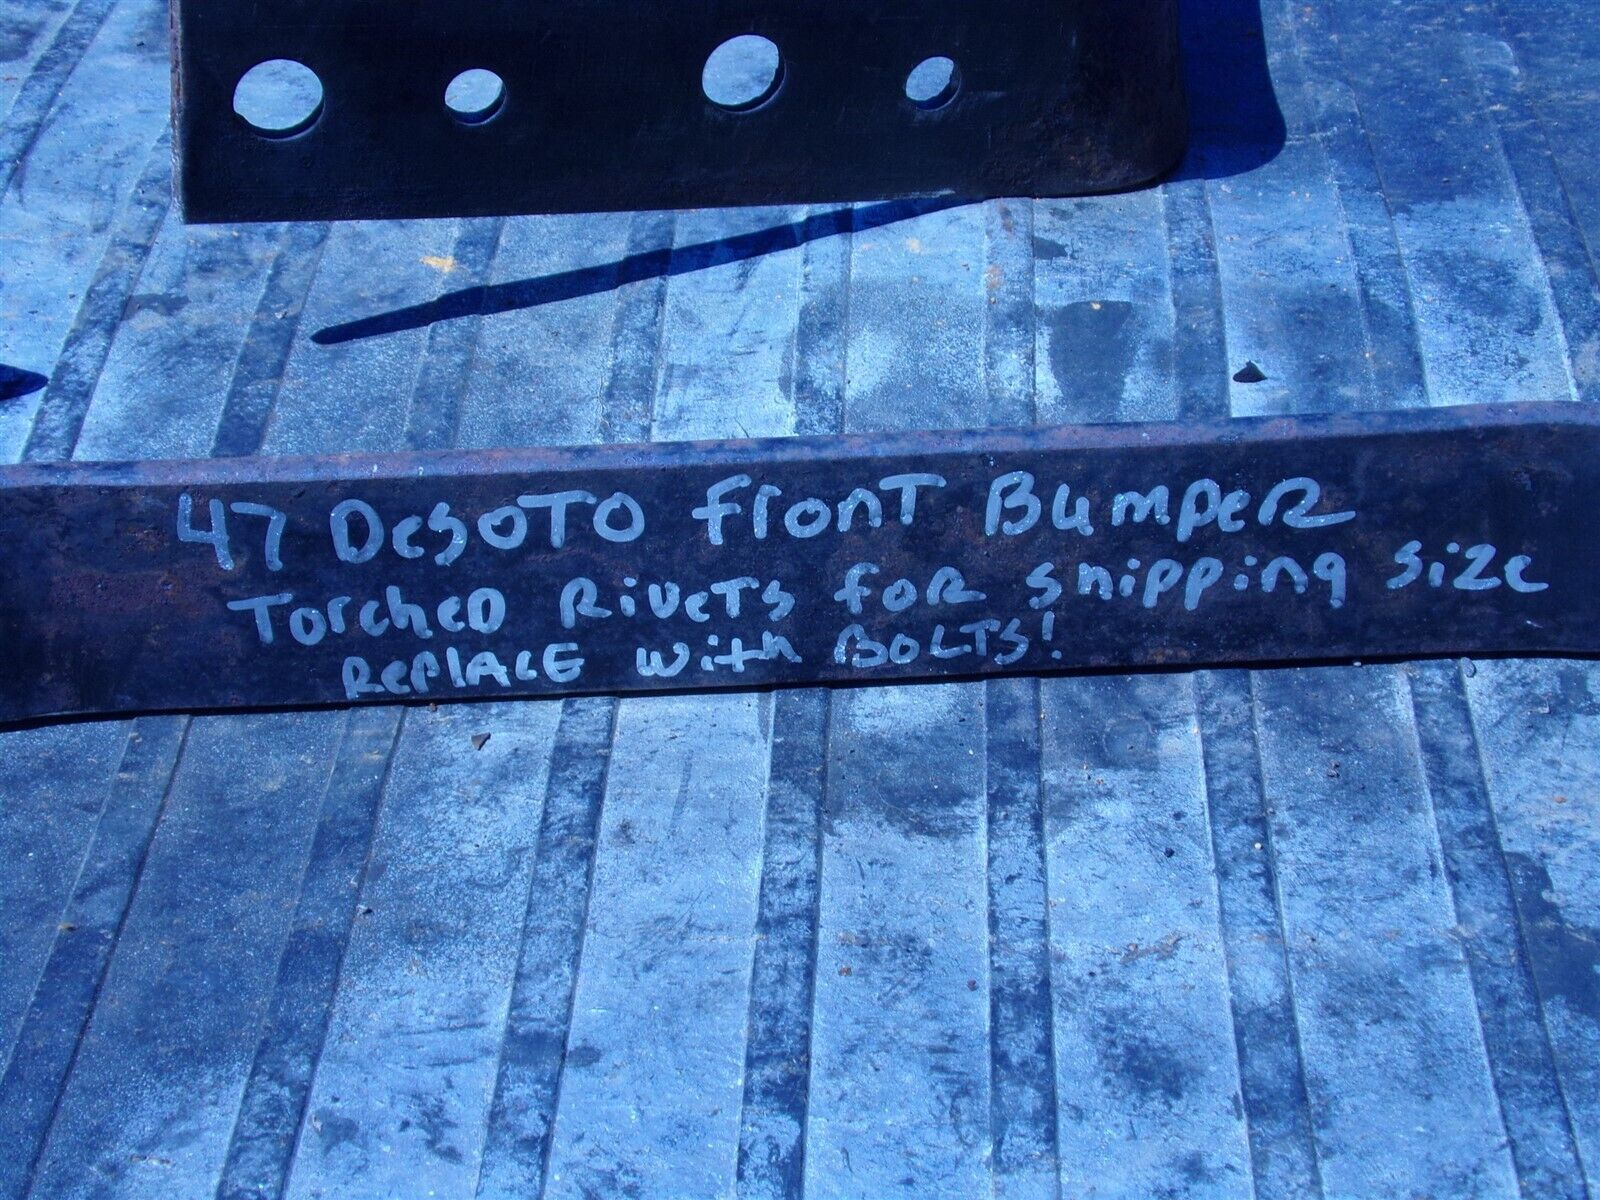 47 DeSOTO front Bumper
Torched Rivets for shipping size
Replace with Bolts!